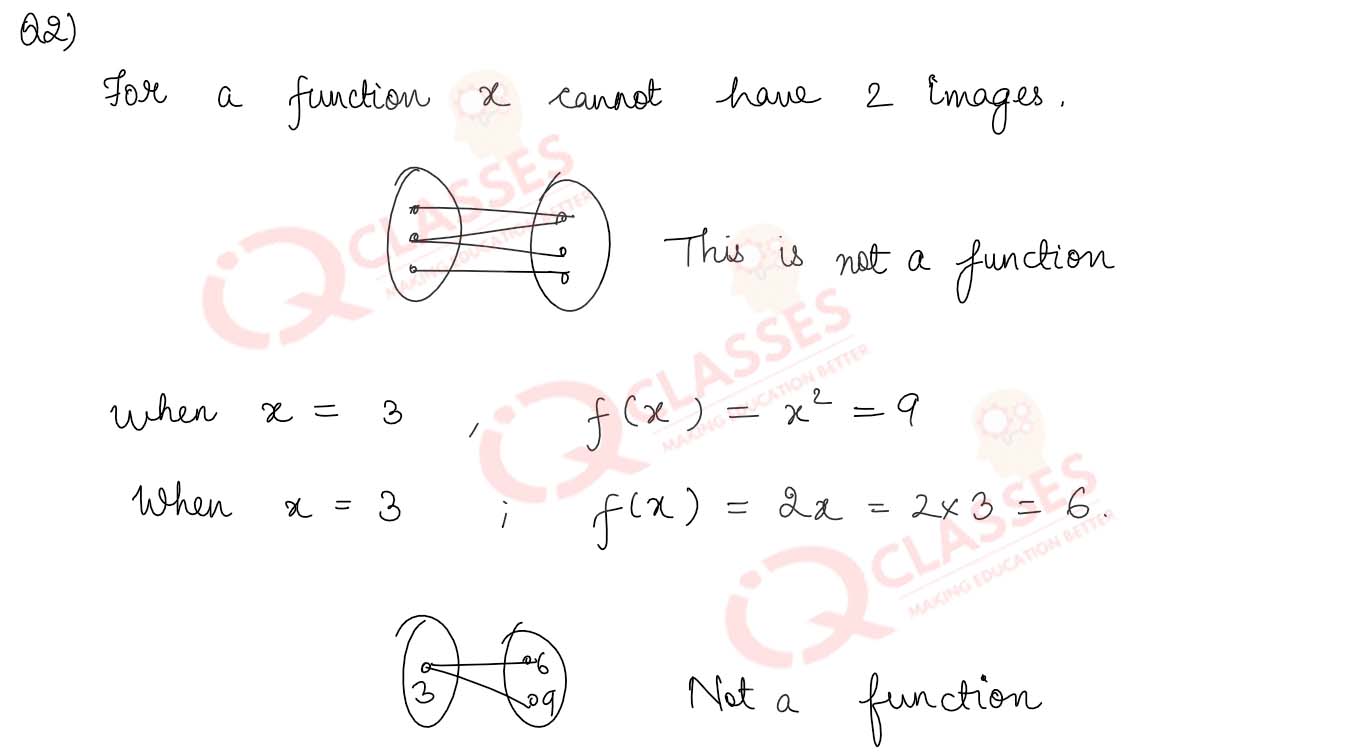 Q2)
For a function x cannot have 2 images.
This is not a function
when x = 3 , f(x) = x² = 9
When x = 3 ; f(x) = 2x = 2×3 = 6.
3
6
9
Not a function
IQ CLASSES
MAKING EDUCATION BETTER
IQ CLASSES
MAKING EDUCATION BETTER
IQ CLASSES
MAKING EDUCATION BETTER